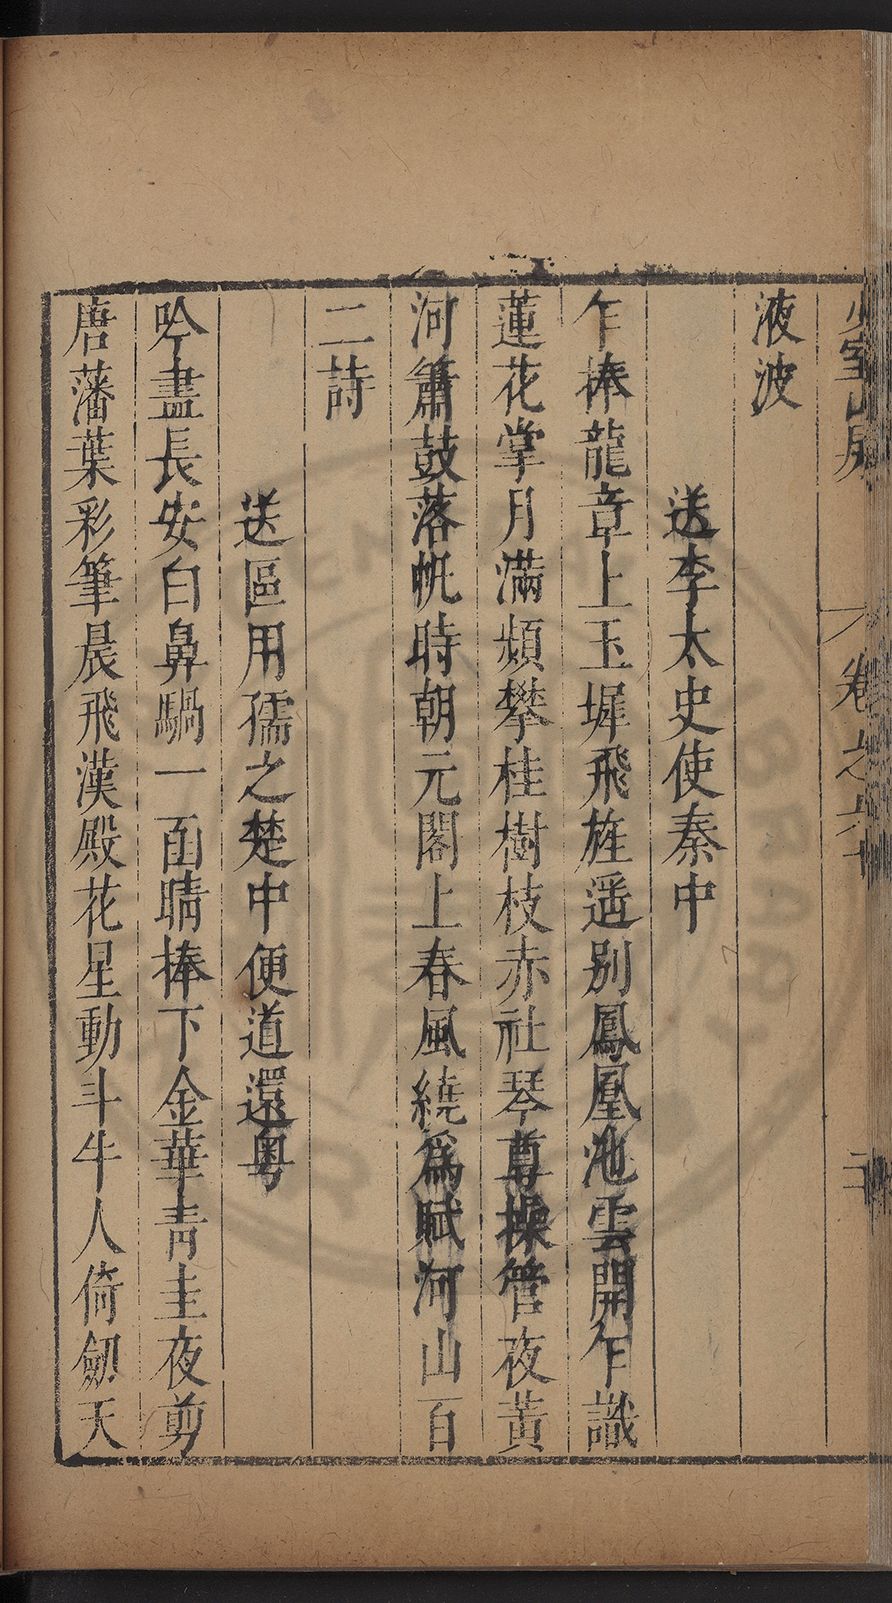 少室山房 卷之六十 二
液波
送李太史使秦中
乍捧龍章上玉墀飛旌遥别鳳凰池雲開乍識
蓮花掌月滿頻攀桂樹枝赤社琴尊操管夜黃
河簫鼓落帆時朝元閣上春風繞爲賦河山百
二詩
送區用孺之楚中便道還粤
吟盡長安白鼻騧一函晴捧下金華青圭夜剪
唐藩葉彩筆晨飛漢殿花星動斗牛人倚劒天